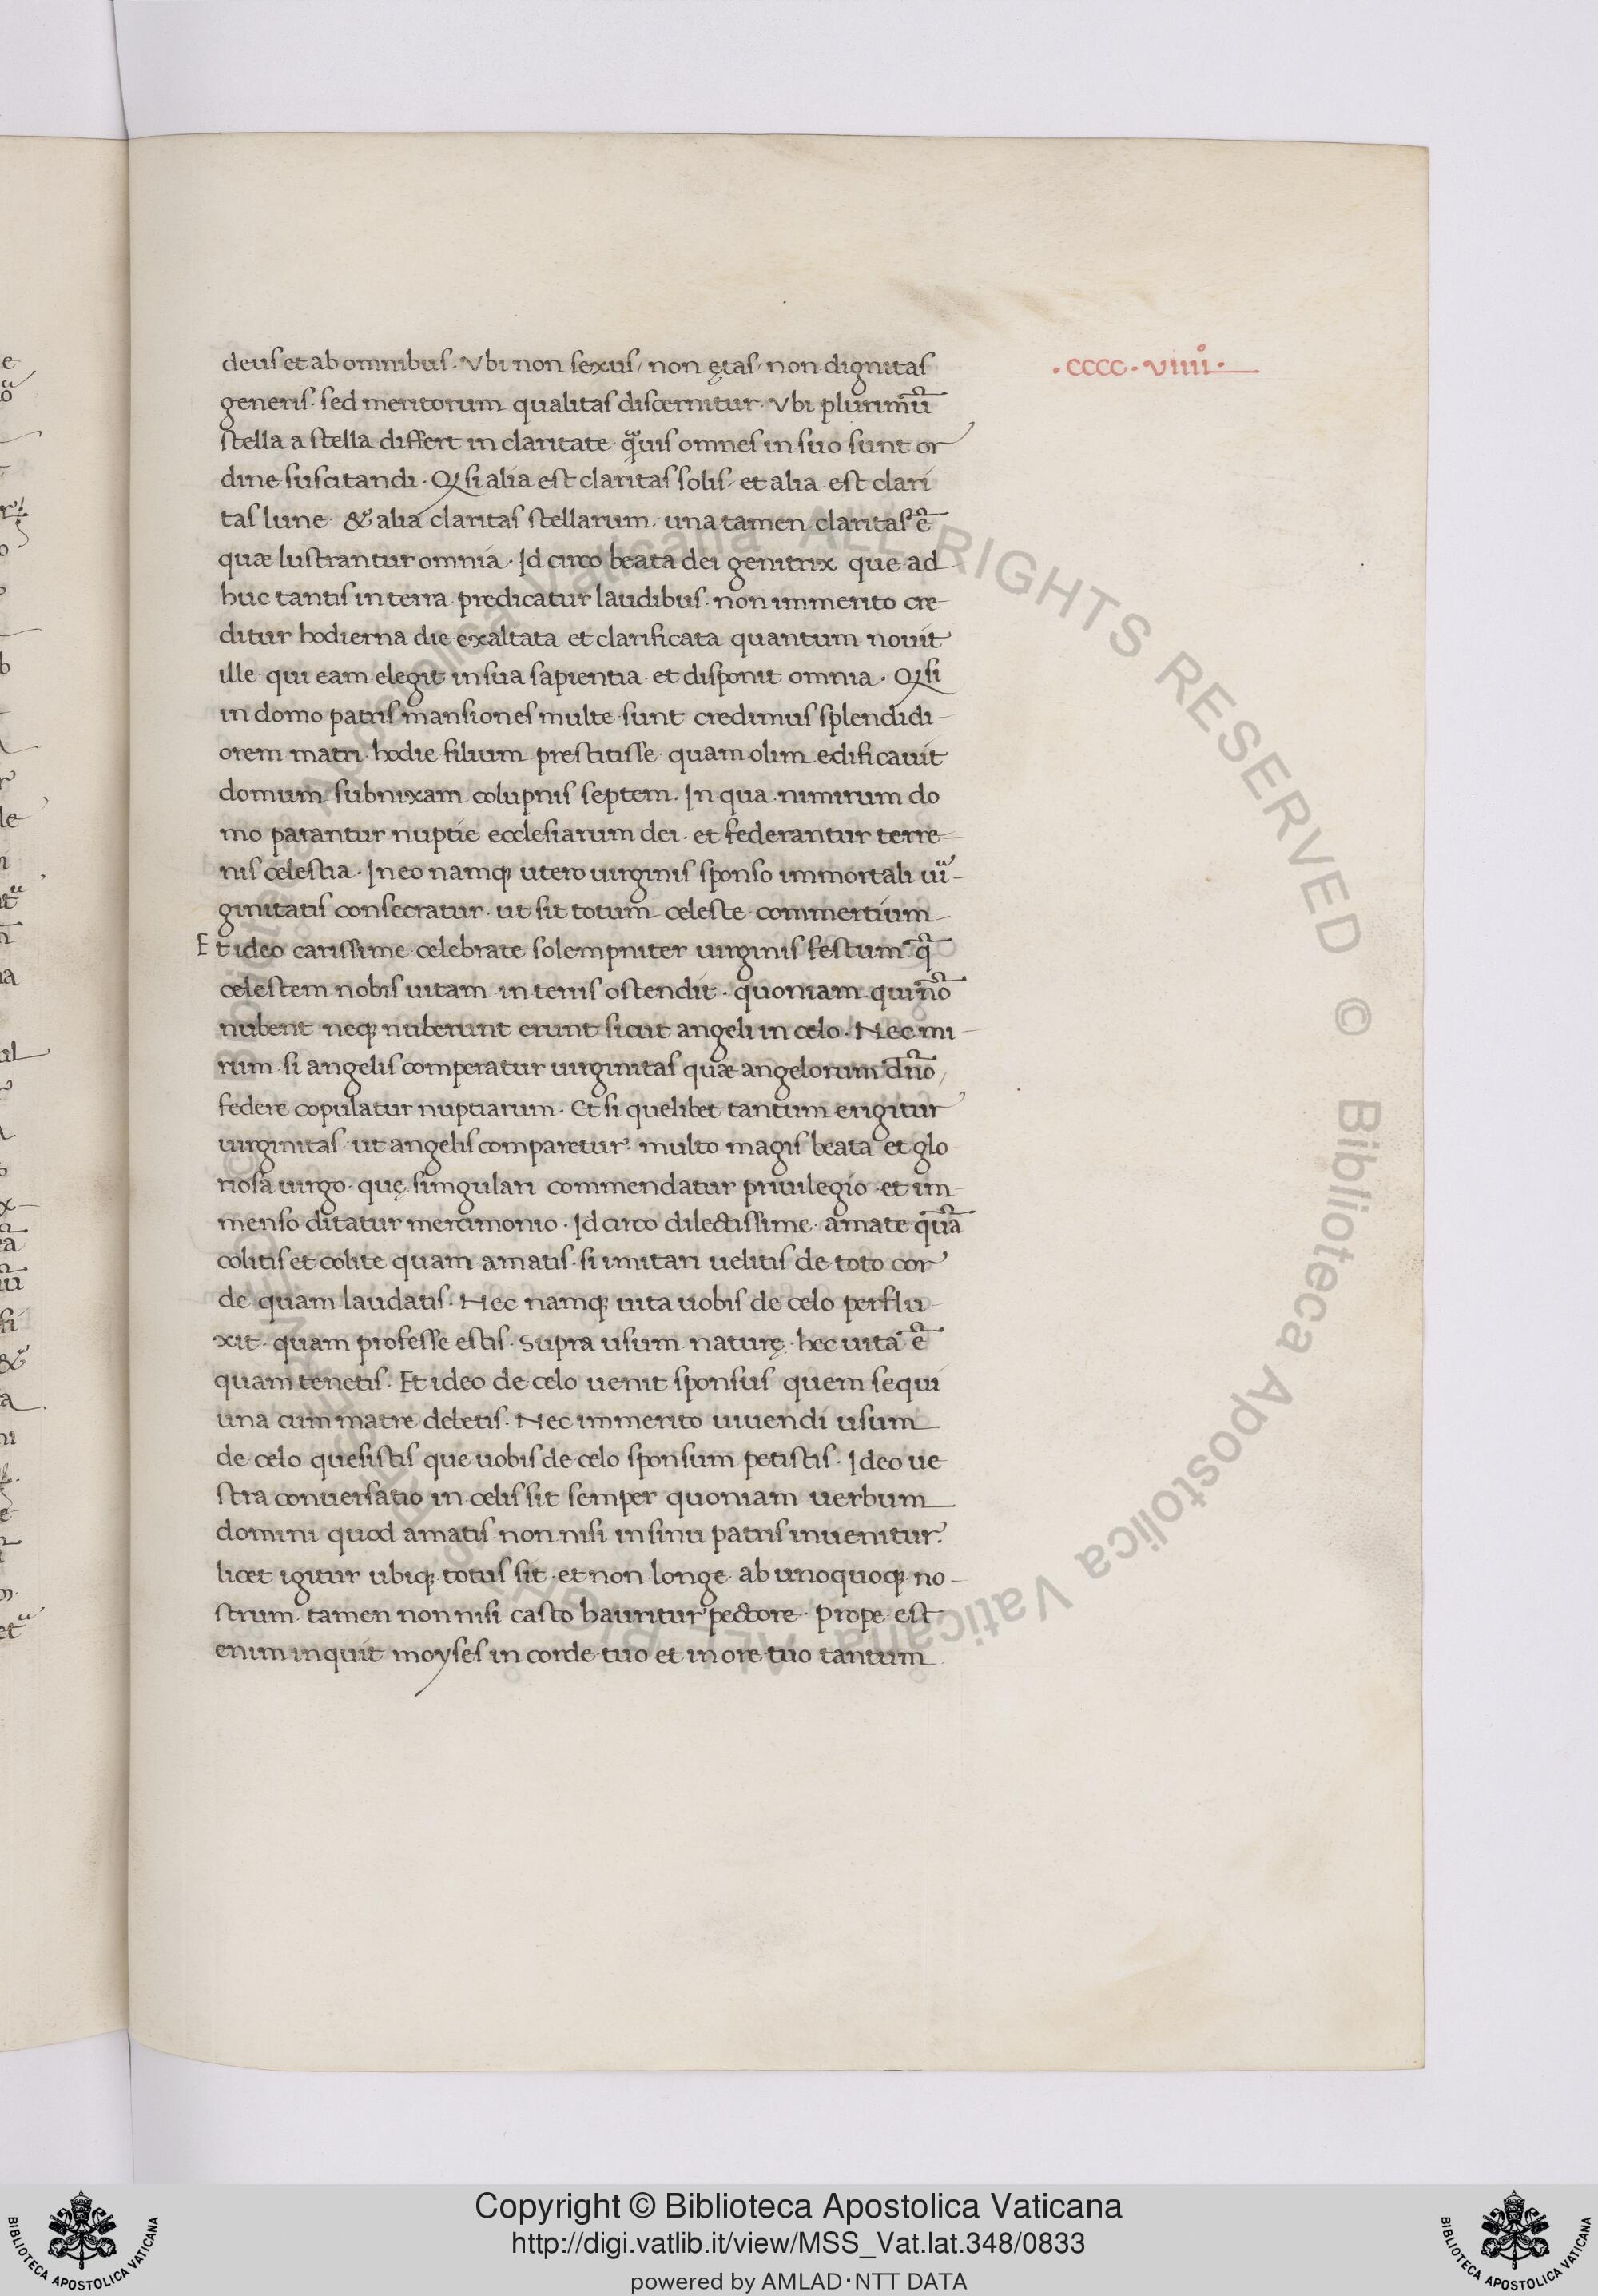 deus et ab omnibus. Vbi non sexus, non ętas, non dignitas
.cccc.viiii°.
generis. sed meritorum qualitas discernitur. Vbi plurimū
stella a stella differt in claritate. q̃uis omnes in suo sunt or
dine suscitandi. Q si alia est claritas solis, et alia est clari
tas lune & alia claritas stellarum. una tamen claritas ē
quæ lustrantur omnia. Id circo beata dei genitrix que ad
huc tantis in terra predicatur laudibus. non immerito cre
ditur hodierna die exaltata et clarificata quantum nouit
ille qui eam elegit in sua sapientia et disponit omnia. Q si
in domo patris mansiones multe sunt credimus splendidi-
orem matri hodie filium prestitisse. quam olim edificauit
domum subnixam colupnis septem. In qua nimirum do
mo parantur nuptie ecclesiarum dei. et federantur terre-
nis celestia. In eo namq; utero uirginis sponso immortali uir-
ginitatis consecratur. ut sit totum celeste commertium
Et ideo carissime celebrate solempniter uirginis festum. q̃
celestem nobis uitam in terris ostendit. quoniam qui nō
nubent neq; nuberunt erunt sicut angeli in celo. Nec mi-
rum si angelis comperatur uirginitas quæ angelorum dñō
federe copulatur nuptiarum. Et si quelibet tantum erigitur
uirginitas ut angelis comparetur. multo magis beata et glo
riosa uirgo. quę singulari commendatur priuilegio. et im
menso ditatur mercimonio. Id circo dilectissime amate quā
colitis et colite quam amatis. si imitari uelitis de toto cor
de quam laudatis. Nec namq; uita uobis de celo perflu-
xit. quam professe estis. Supra usum naturę hec uita ē
quam tenetis. Et ideo de celo uenit sponsus quem sequi
una cum matre debetis. Nec immerito uiuendi usum
de celo quesistis que uobis de celo sponsum petistis. Ideo ue
stra conuersatio in celis sit semper quoniam uerbum
domini quod amatis non nisi in sinu patris inuenitur.
licet igitur ubiq; totus sit. et non longe ab unoquoq; no-
strum. tamen non nisi casto hauritur pectore. Prope est
enim inquit moyses in corde tuo et in ore tuo tantum
Copyright © Biblioteca Apostolica Vaticana
http://digi.vatlib.it/view/MSS_Vat.lat.348/0833
powered by AMLAD·NTT DATA